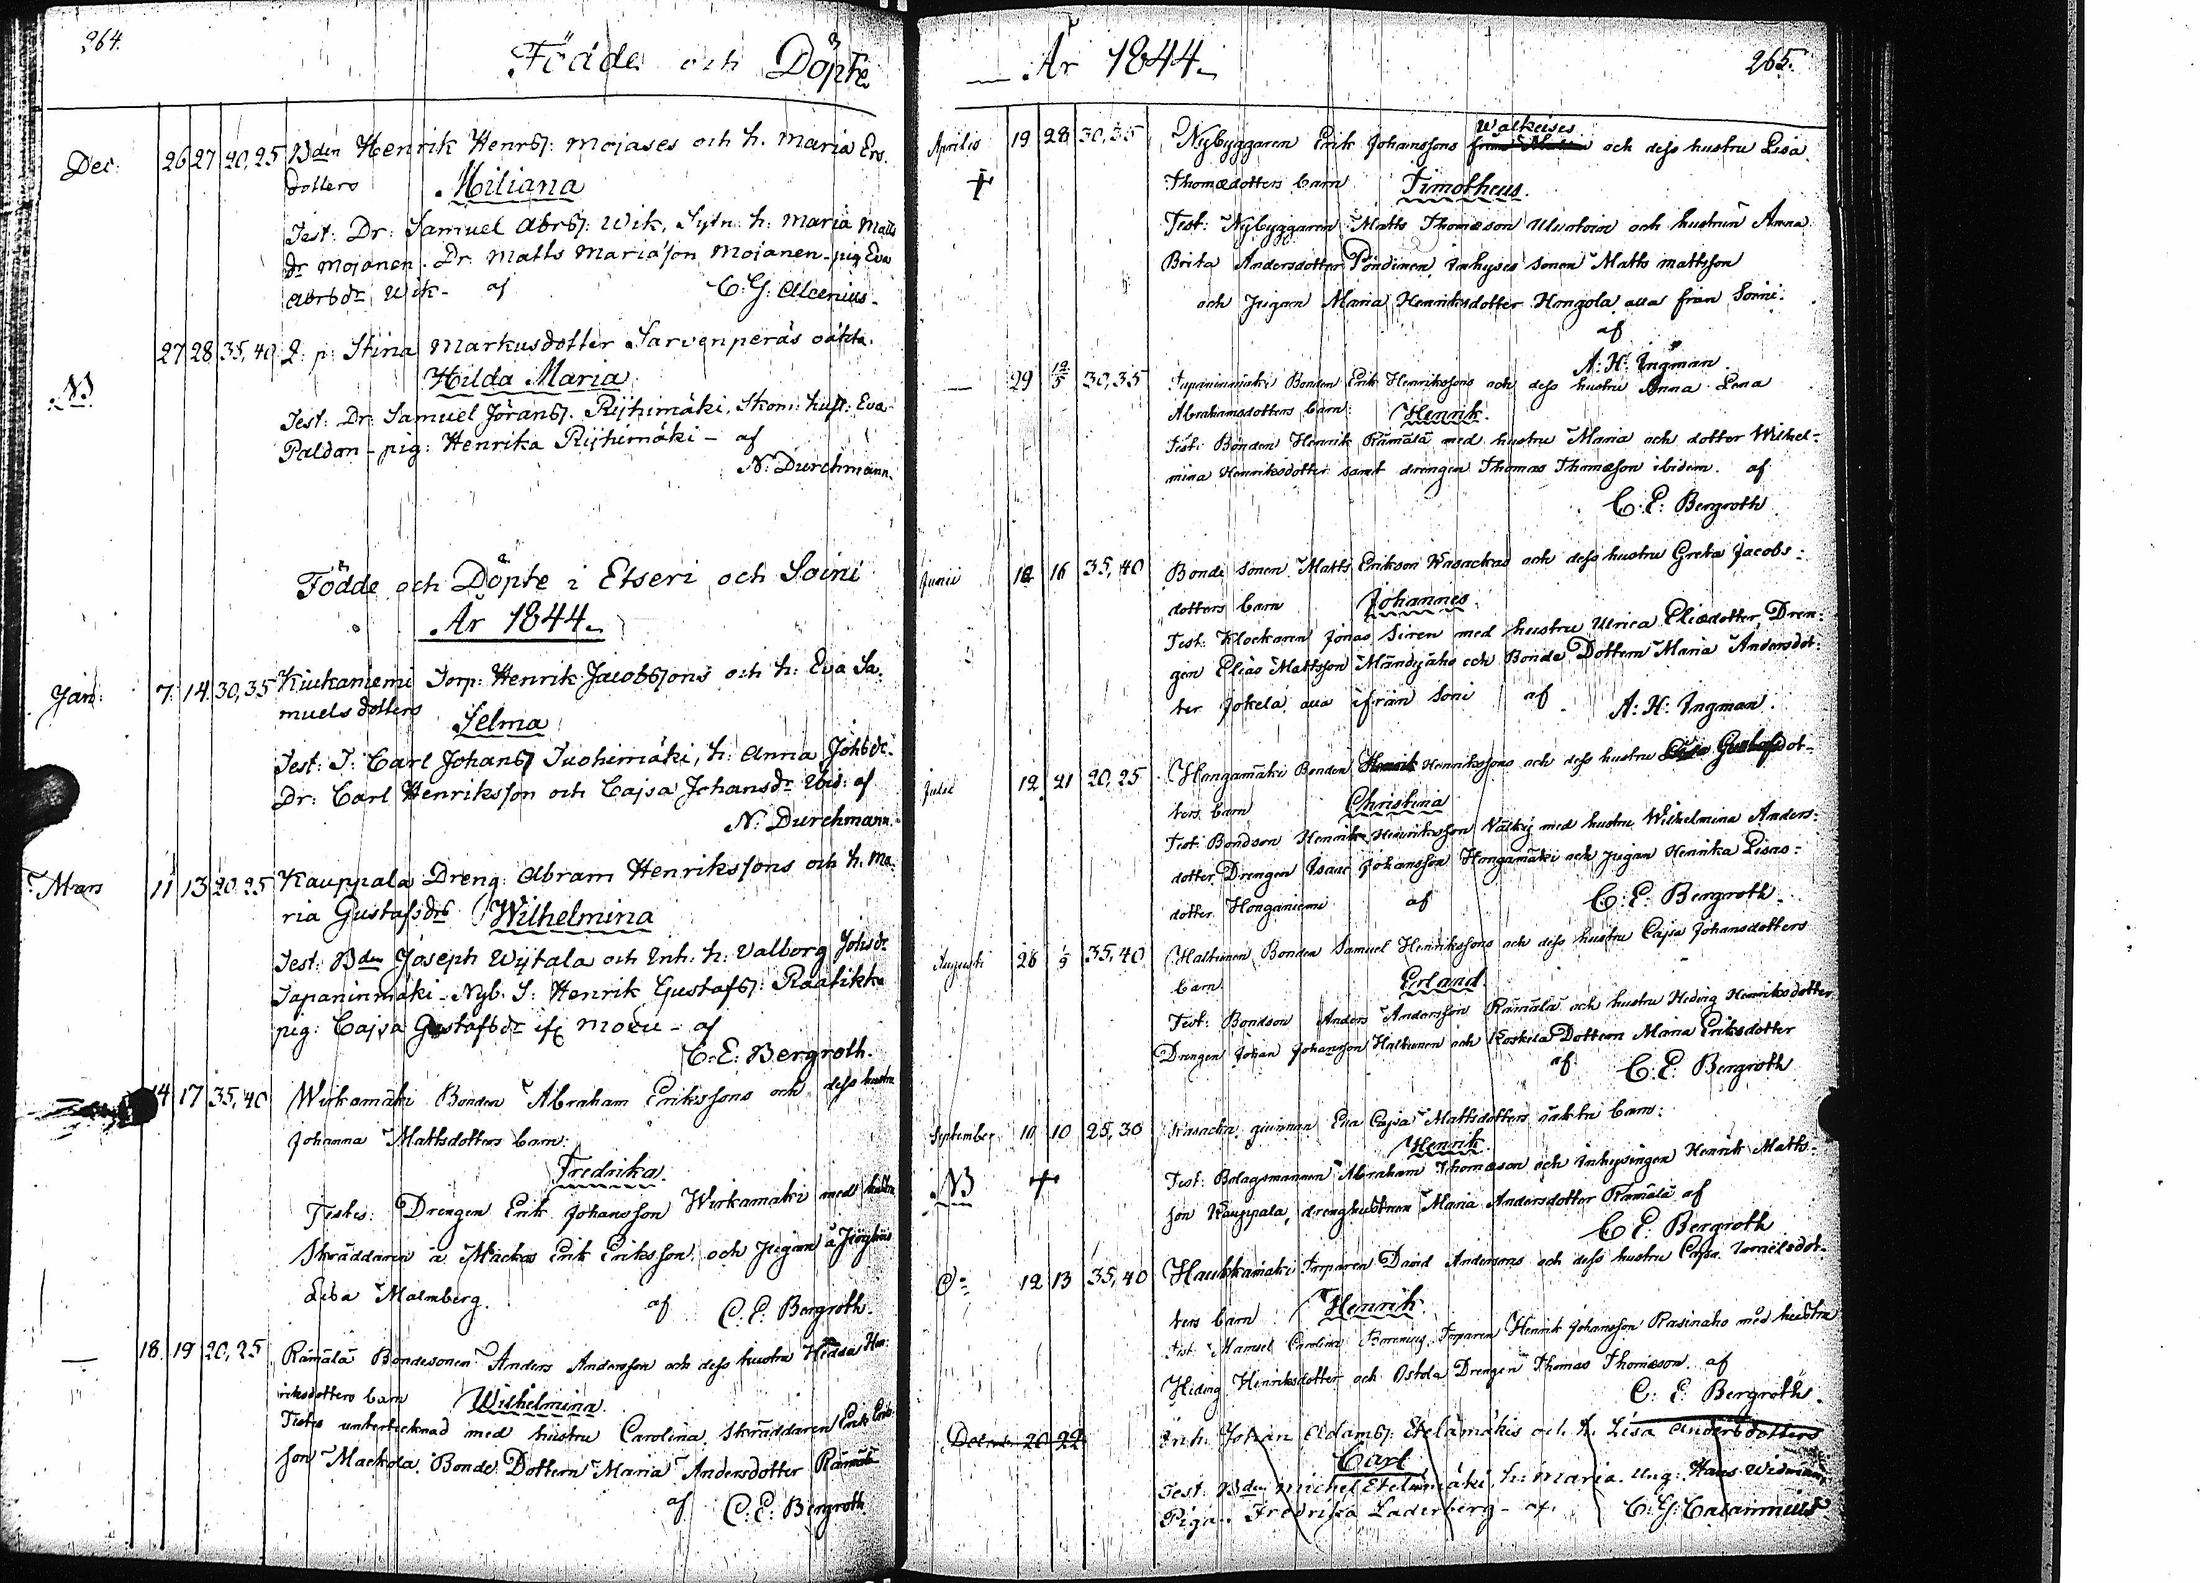 264.
Födde och Döpte
Dec: 26 27 20,25 Bden Henrik Henrss: Mojases och h. Maria Ers.
dotters Miliana
Test: Dr: Samuel Abrss: Wik, Sytn: h: Maria Matts
dr Mojanen. Dr. Matts Mariäson Mojanen - pig Eva
Abrsdr Wik - af C: G: Alcenius -
27 28 35,40 Q: p: Stina Markusdotter Sarvenperäs oäkta.
NB Hilda Maria
Test: Dr: Samuel Göranss. Rijhimäki, Skom: hust: Eva
Paldan - pig: Henrika Rijhimäki - af
N: Durchmann.
Födde och Döpte i Etseri och Soini
År 1844.
Jan: 7. 14 30,35 Kiukaniemi Torp: Henrik Jacobssons och h: Eva Sa-
muels dotters Selma
Test: T: Carl Johanss Tuohimäki, h: Anna Johsdr
Dr: Carl Henriksson och Cajsa Johansdr ibid: af
N: Durchmann.
Mars 11 13 20,25 Kauppala Dreng: Abram Henrikssons och h. Ma-
ria Gustafsdrs Wilhelmina
Test: Bden Joseph Wijtala och Inh. h: Valborg Johsdr
Japaninmäki - Nyb. S: Henrik Gustafss: Raatikka
pig: Cajsa Gustafsdr ifr Moxu - af
C: E: Bergroth.
14 17 35,40 Wirkamäki Bonden Abraham Erikssons och dess hustru
Johanna Mattsdotters barn:
Fredrika.
Testes: Drengen Erik Johansson Wirkamäki med hustru
Skräddaren å Mackas Erik Eriksson och Pigan å
Lisa Malmberg. af C: E: Bergroth.
— 18 19 20,25 Rämälä Bondesonen Anders Andersson och dess hustru Hedsa Hen-
riksdotters barn Wilhelmina.
Testes undertecknad med hustru Carolina, Skräddaren Erik Eriks-
son Mackola, Bonde Dottern Maria Andersdotter Rämälä
af C: E: Bergroth.
— År 1844. 265.
Walkeises
Aprilis 19 28 30,35 Nybyggaren Erik Johanssons och dess hustru Lisa
+ Thomædotters barn Timotheus.
Test: Nybyggaren Matts Thomæson och hustrun Anna
Brita Andersdotter Pöndinen, Inhyses sonen Matts Mattsson
och Pigan Maria Henriksdotter Hongola alla från Soini.
af
A: H: Ingman
— 29 12/5 30,35 Japaninmäki Bonden Erik Henrikssons och dess hustru Anna Lena
Abrahamsdotters barn: Henrik.
Test: Bonden Henrik Rämälä med hustru Maria och dotter Wilhel-
mina Henriksdotter samt drengen Thomas Thomæson ibidem. af
C: E: Bergroth
Junii 12 16 35,40 Bonde sonen Matts Erikson Kasackas och dess hustru Greta Jacobs-
dotters barn Johannes.
Test: Klockaren Jonas Siren med hustru Ulrica Eliædotter, Dren-
gen Elias Mattsson Mändyaho och Bonde Dottern Maria Andersdot-
ter Jokela alla ifrån Soni af A: H: Ingman.
Julii 12 21 20,25 Hongamäki Bonden Henrik Henrikssons och dess hustru Lisa Gustafsdot-
ters barn Christina
Test. Bondson Henrik Henriksson Välkij med hustru Wilhelmina Anders-
dotter, Drengen Isaac Johansson Hongamäki och Pigan Henrika Lisas-
dotter Honganiemi af C: E: Bergroth.
Augusti 26 1/9 35,40 Haltunen Bonden Samuel Henrikssons och dess hustru Cajsa Johansdotters
barn Erland.
Test: Bondson Anders Andersson Rämälä och hustru Hedvig Henriksdotter
Drengen Johan Johansson Haltunen och Koskela Dottern Maria Eriksdotter
af C: E: Bergroth
September 10 10 25,30 Kasacka qvinnan Eva Cajsa Mattsdotters oäkta barn:
Henrik.
NB + Test: Bolagsmannen Abraham Thomæson och Inhysingen Henrik Matts-
son Kauppala, drenghustrun Maria Andersdotter Rämälä af
C: E: Bergroth
Do 12 13 35,40 Haukkamäki Torparen David Anderssons och dess hustru Cajsa
ters barn Henrik.
Test. Mamsel Carolina Forsenius, Torparen Henrik Johansson Rasinaho med hustru
Hedvig Henriksdotter och Ostola Drengen Thomas Thomæson. af
C: E: Bergroth.
December 20 22 Inh: Johan Adamss: Etelämäkis och h. Lisa Anders dotters
Carl
Test. Bden Michel Etelämäki, h: Maria. Ung: Hans Widman,
Piga. Fredrika Laderberg - af. C: G: Calamnius.